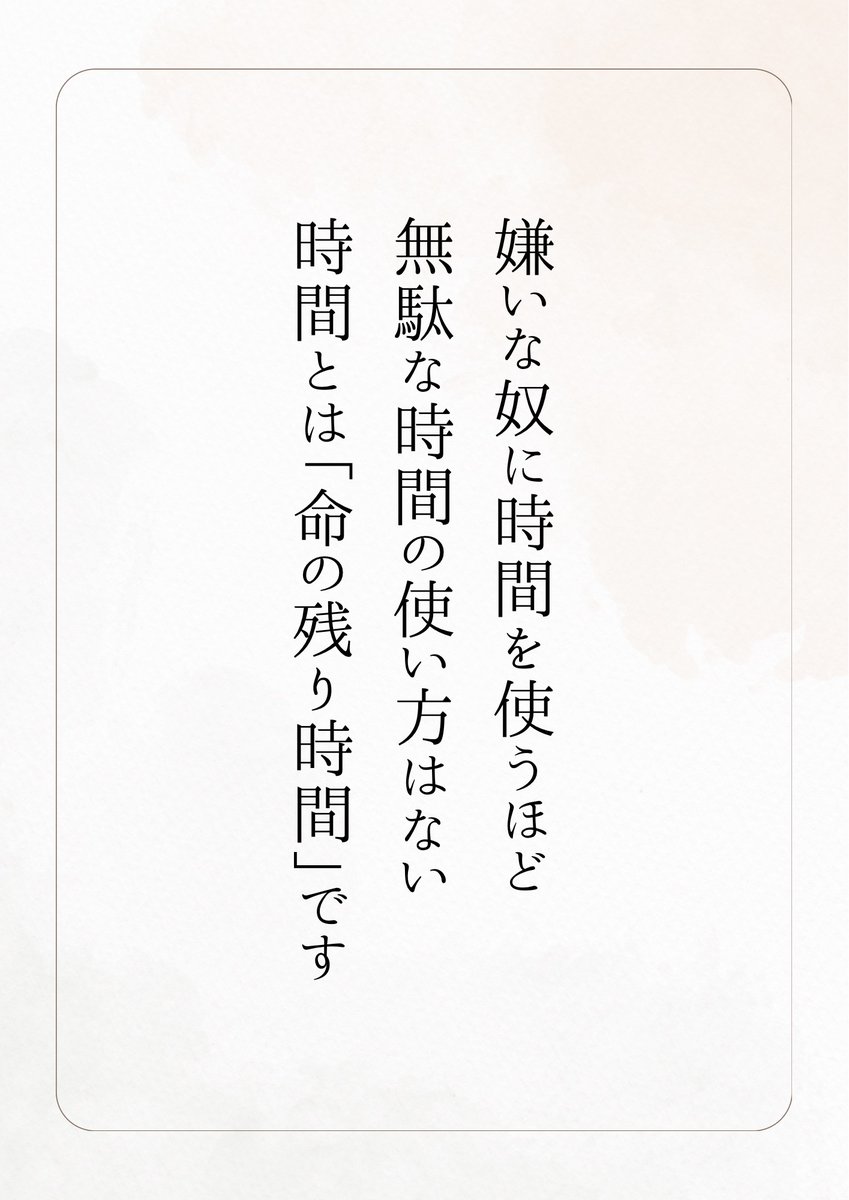 嫌いな奴に時間を使うほど
無駄な時間の使い方はない
時間とは「命の残り時間」です